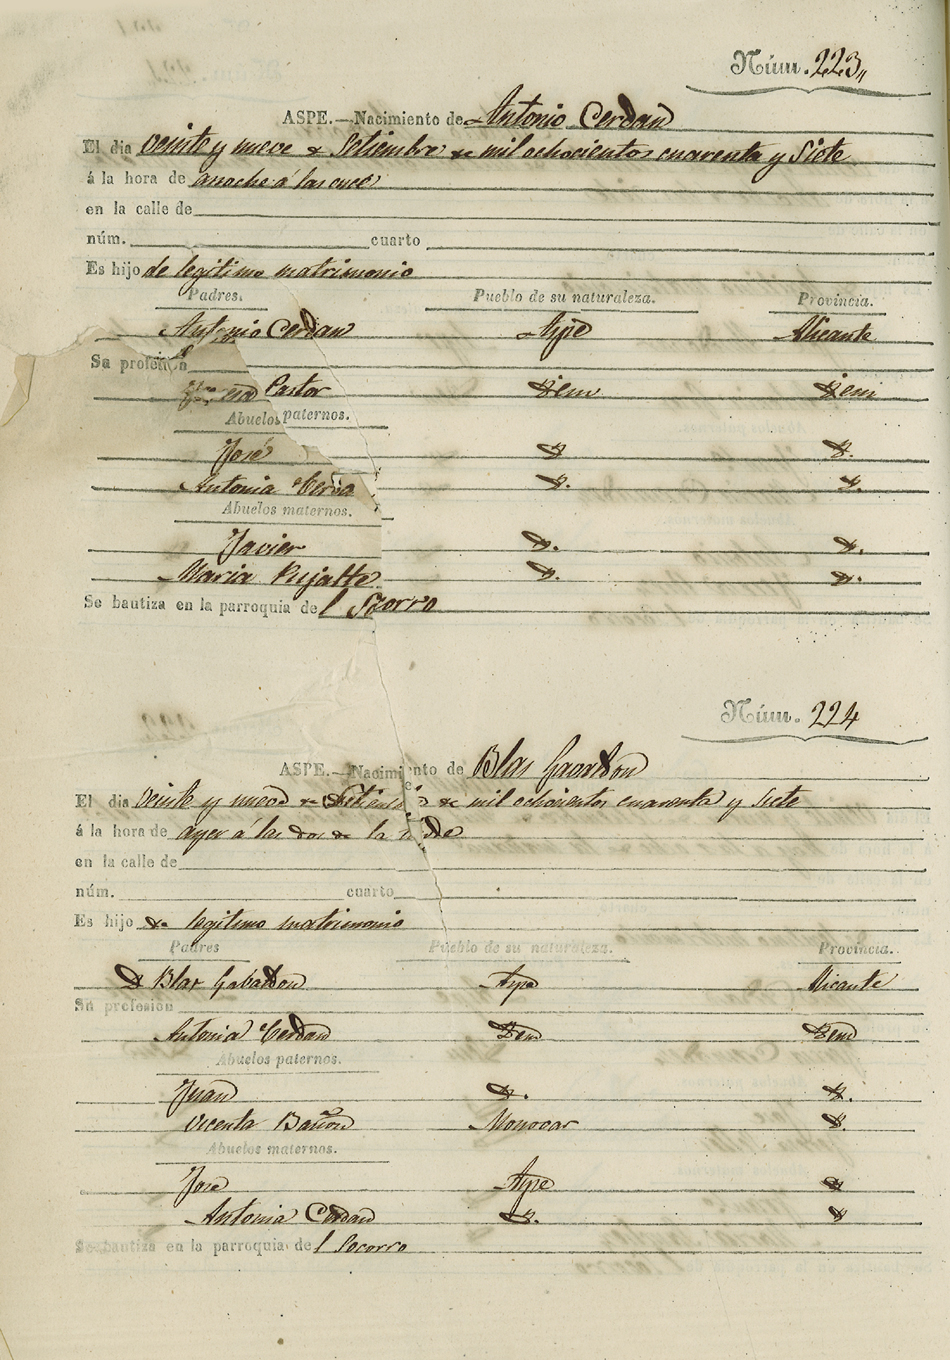 Núm. 223,,
ASPE.—Nacimiento de Antonio Cerdan
El dia veinte y nueve de Setiembre de mil ochocientos cuarenta y Siete
á la hora de anoche á las
en la calle de
núm. cuarto
Es hijo de legitimo matrimonio
Padres. Pueblo de su naturaleza. Provincia.
Antonio Cerdan Aspe Alicante
Su profesion
Castor Idem Idem
Abuelos paternos.
José Id. Id.
Antonia Id. Id.
Abuelos maternos.
Javier Id. Id.
Maria Pujalte Id. Id.
Se bautiza en la parroquia de l Socorro
Núm. 224
ASPE.—Nacimiento de Blas Gavaldon
El dia veinte y nueve de Setiembre de mil ochocientos cuarenta y siete
á la hora de ayer á las dos de la tarde
en la calle de
núm. cuarto
Es hijo de legitimo matrimonio
Padres Pueblo de su naturaleza. Provincia.
D Blas Gabaldon Aspe Alicante
Su profesion
Antonia Cerdan Idem Idem
Abuelos paternos.
Juan Id. Id.
Vicenta Bañon Monovar Id.
Abuelos maternos.
José Aspe Id
Antonia Cerdan Id. Id
Se bautiza en la parroquia de l Socorro